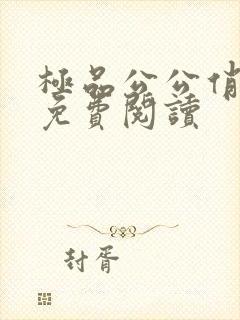 極品公公俏
免費閱讀
封胥